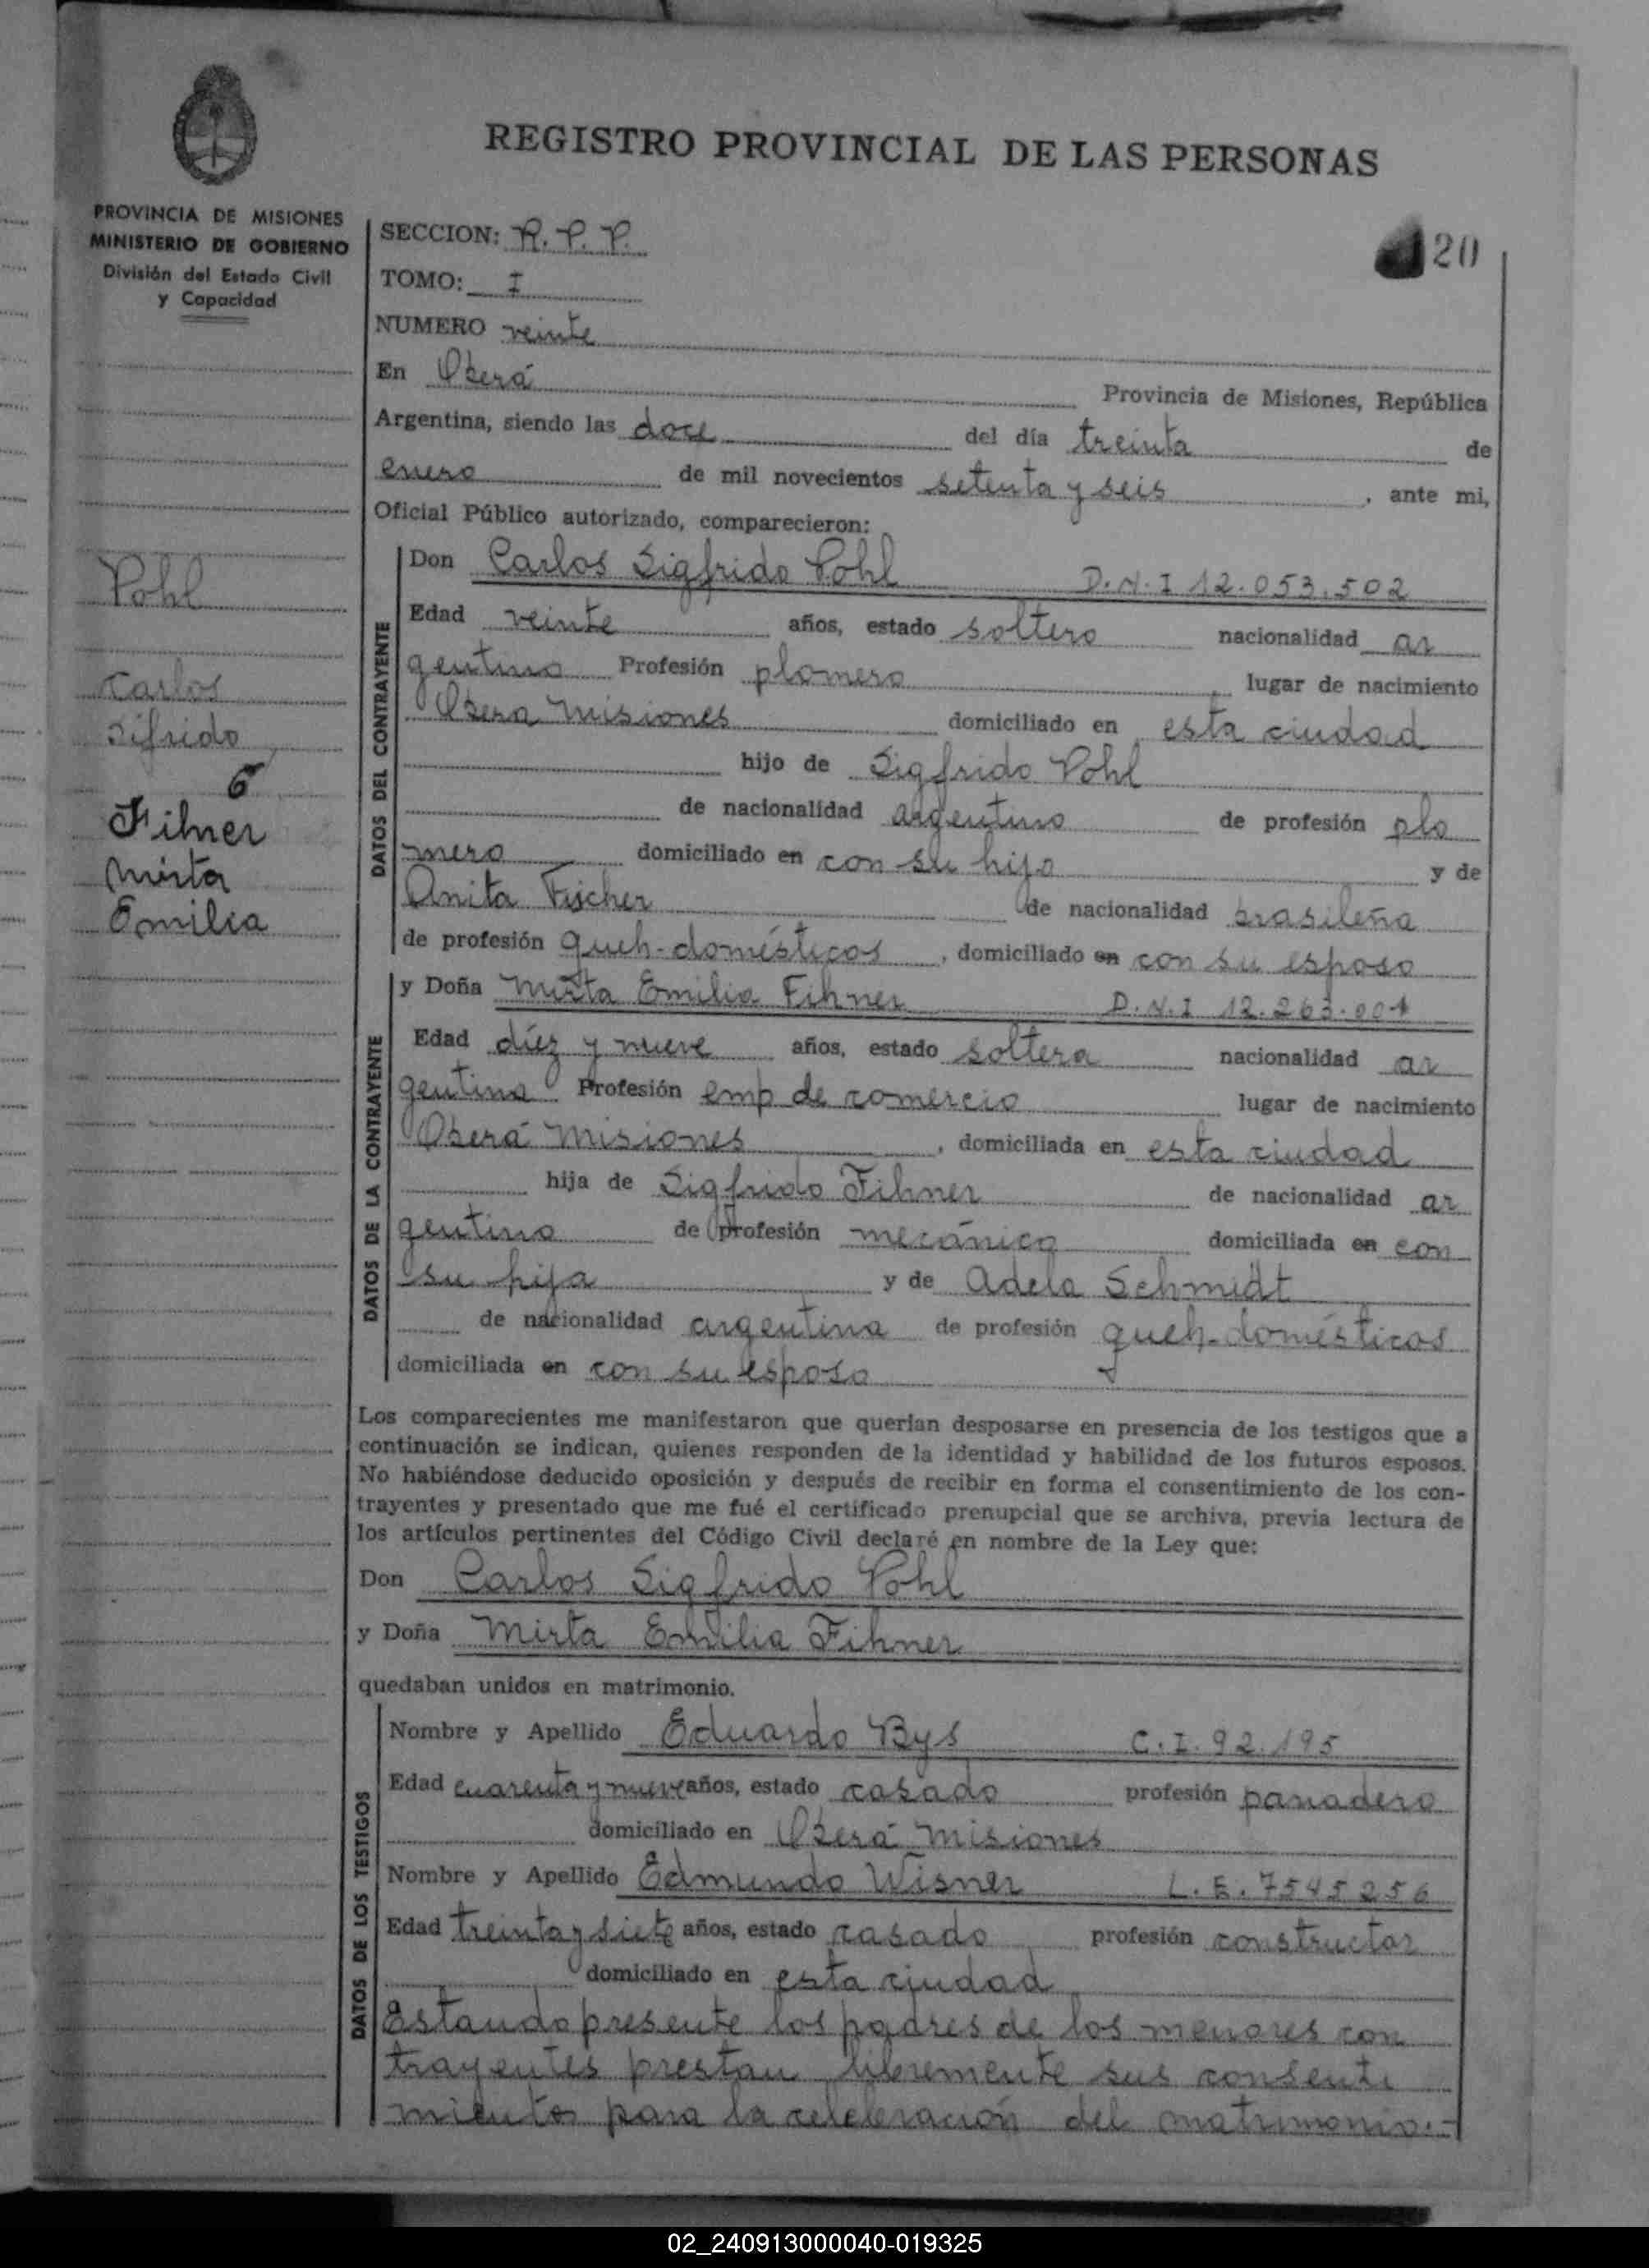 REGISTRO PROVINCIAL DE LAS PERSONAS
PROVINCIA DE MISIONES
MINISTERIO DE GOBIERNO
División del Estado Civil
y Capacidad
SECCION: R. P. P.
20
TOMO: I
NUMERO veinte
En Oberá Provincia de Misiones, República
Argentina, siendo las doce del día treinta de
enero de mil novecientos setenta y seis, ante mi,
Oficial Público autorizado, comparecieron:
Pohl
Carlos
Sifrido
ó
Fihner
Mirta
Emilia
DATOS DEL CONTRAYENTE
Don Carlos Sigfrido Pohl D.N.I 12.053.502
Edad veinte años, estado soltero nacionalidad ar
gentino Profesión plomero, lugar de nacimiento
Obera Misiones domiciliado en esta ciudad
hijo de Sigfrido Pohl
de nacionalidad argentino de profesión plo
mero domiciliado en con su hijo y de
Anita Fischer de nacionalidad brasileña
de profesión queh-domésticos, domiciliado en con su esposo
DATOS DE LA CONTRAYENTE
y Doña Mirta Emilia Fihner D.N.I 12.263.001
Edad diéz y nueve años, estado soltera nacionalidad ar
gentina Profesión emp de comercio lugar de nacimiento
Oberá Misiones, domiciliada en esta ciudad
hija de Sigfrido Fihner de nacionalidad ar
gentino de profesión mecánico domiciliada en con
su hija y de Adela Schmidt
de nacionalidad argentina de profesión queh-domésticos
domiciliada en con su esposo
Los comparecientes me manifestaron que querían desposarse en presencia de los testigos que a
continuación se indican, quienes responden de la identidad y habilidad de los futuros esposos.
No habiéndose deducido oposición y después de recibir en forma el consentimiento de los con-
trayentes y presentado que me fué el certificado prenupcial que se archiva, previa lectura de
los artículos pertinentes del Código Civil declaré en nombre de la Ley que:
Don Carlos Sigfrido Pohl
y Doña Mirta Emilia Fihner
quedaban unidos en matrimonio.
DATOS DE LOS TESTIGOS
Nombre y Apellido Eduardo Bys C.I. 92.195
Edad cuarenta y nueve años, estado casado profesión panadero
domiciliado en Oberá Misiones
Nombre y Apellido Edmundo Wisner L.E. 7545256
Edad treinta y siete años, estado casado profesión constructor
domiciliado en esta ciudad
Estando presente los padres de los menores con
trayentes prestan libremente sus consenti
miento para la celebración del matrimonio.-
02_240913000040-019325